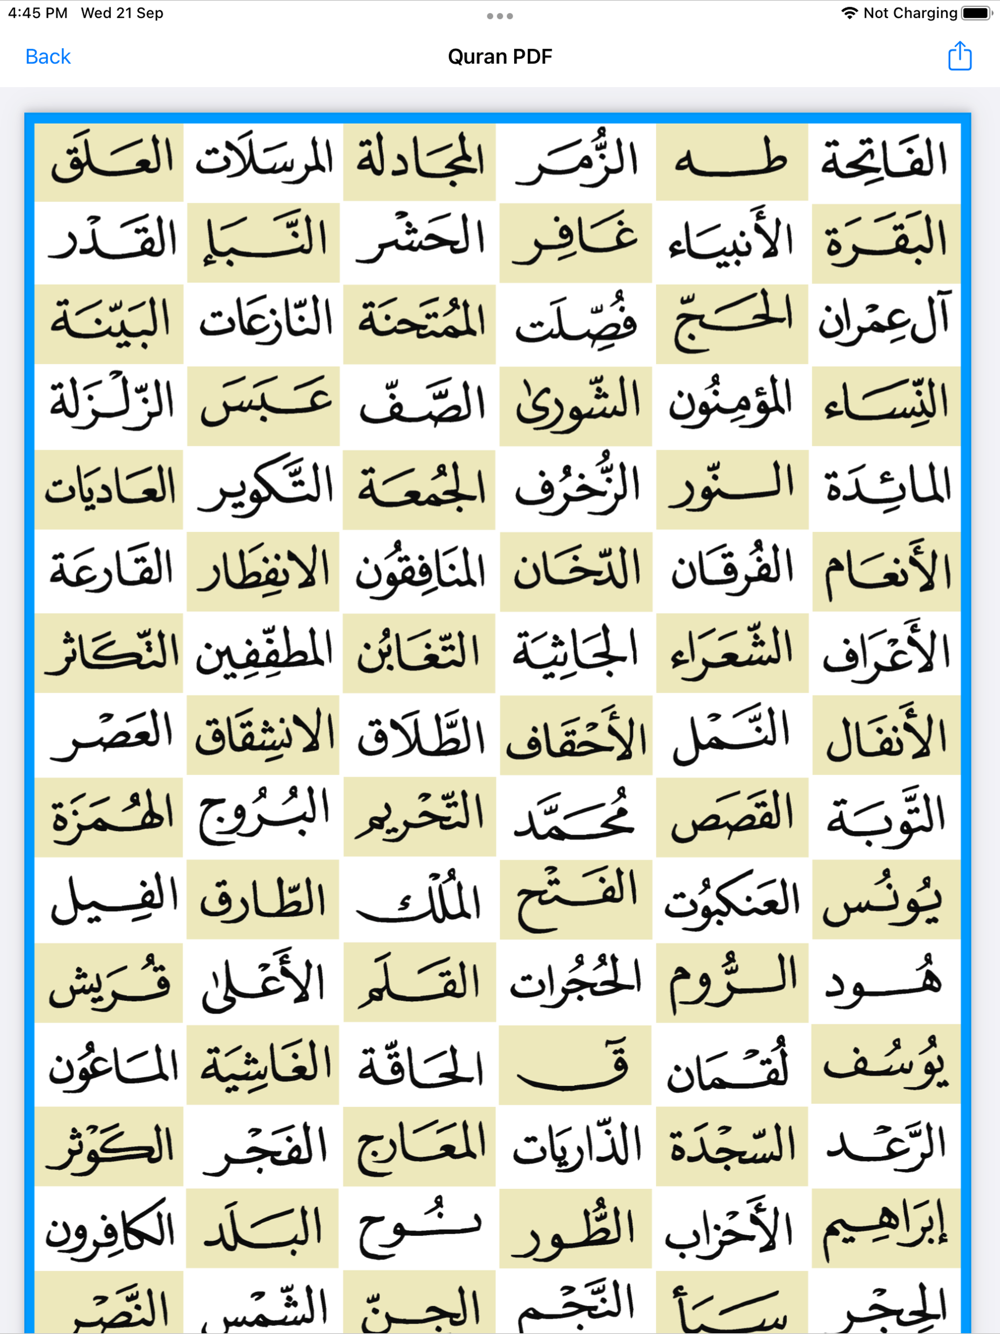 4:45 PM Wed 21 Sep Not Charging
Back Quran PDF
الفَاتِحة طه الزُّمَر المجَادلة المرسَلَات العَلَق
البَقَرَة الأَنبيَاء غَافِر الحَشْر النَّبَإ القَدْر
آل عِمْران الحَجّ فُصِّلَت المُمْتَحنَة النّازعَات البَيّنَة
النِّسَاء المؤمِنُون الشّورىٰ الصَّفّ عَبَسَ الزّلْزَلة
المائِدَة النّور الزُّخرُف الجُمُعَة التَّكوير العَاديَات
الأَنعَام الفُرقَان الدّخَان المنَافِقُون الانفِطَار القَارعَة
الأَعْرَاف الشّعَرَاء الجَاثِيَة التّغَابُن المطفِّفِين التّكَاثر
الأَنفَال النَّمْل الأَحْقَاف الطَّلَاق الانشِقَاق العَصْر
التَّوبَة القَصَص مُحَمَّد التّحْريم البُرُوج الهُمَزَة
يُونُس العَنكبُوت الفَتْح المُلْك الطّارق الفِيل
هُود الرُّوم الحُجُرات القَلَم الأَعْلىٰ قُرَيش
يُوسُف لُقمَان قَ الحَاقّة الغَاشِيَة المَاعُون
الرَّعْد السّجْدَة الذّاريَات المعَارج الفَجْر الكَوْثر
إبرَاهِيم الأَحْزاب الطُّور نُوح البَلَد الكافِرون
الحِجْر سَبَأ النَّجْم الجنّ الشّمْس النَّصْر